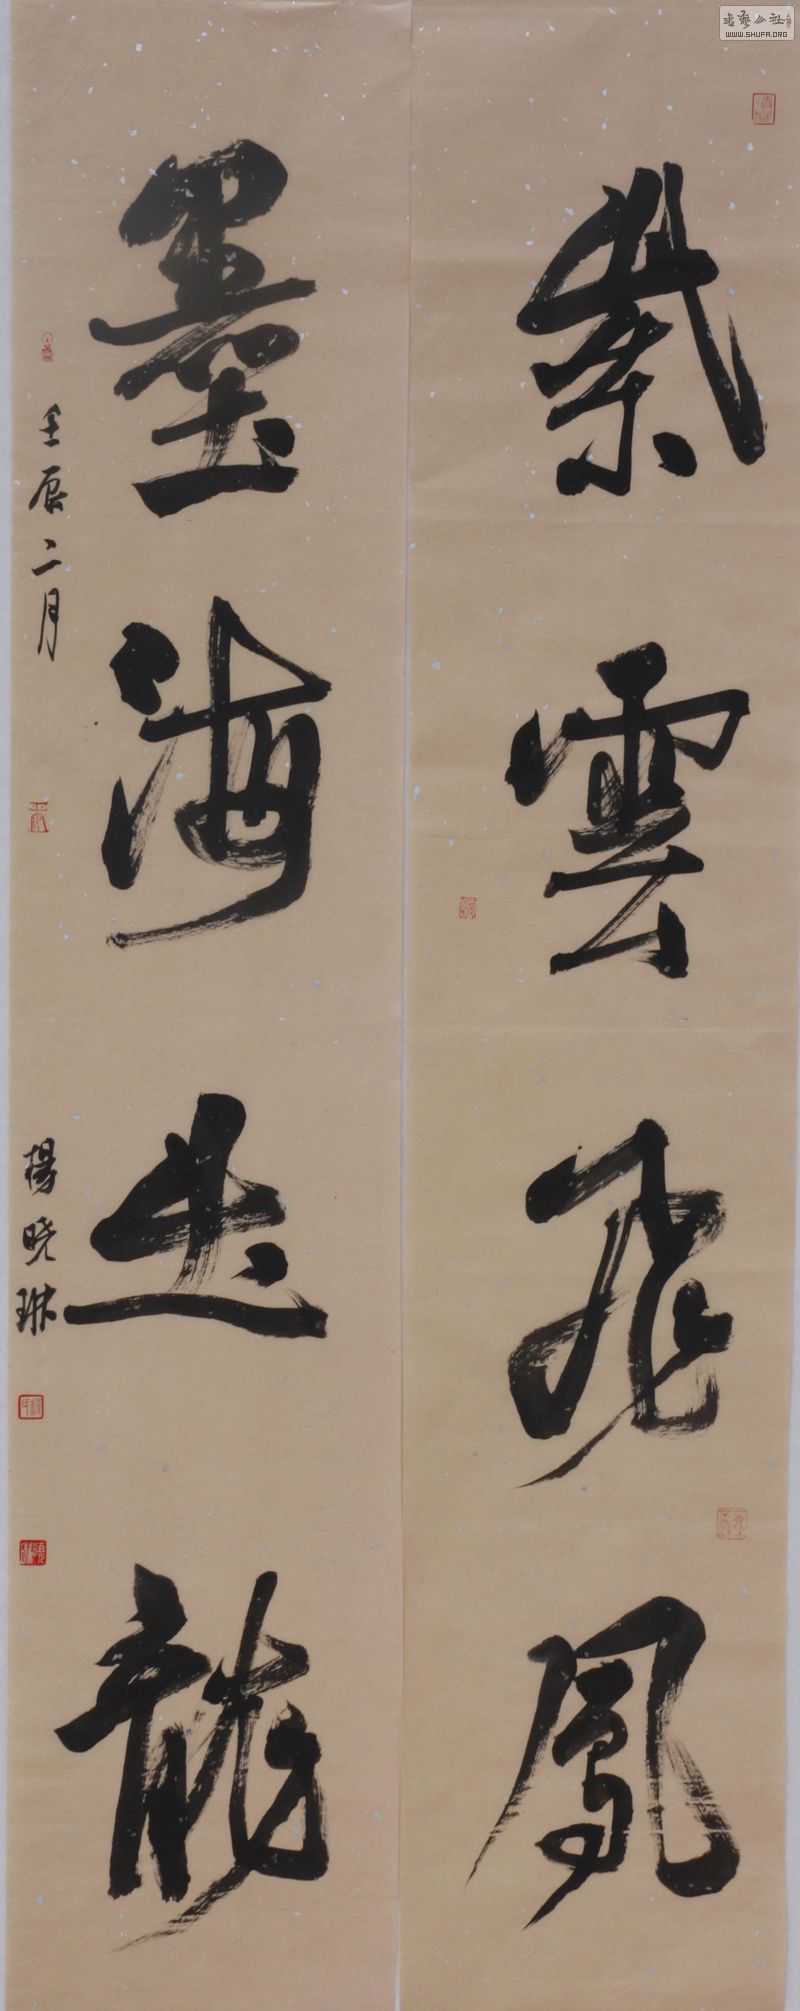 紫雲飛鳳
墨海出龍
壬辰二月
楊晓琳
书艺公社
WWW.SHUFA.ORG